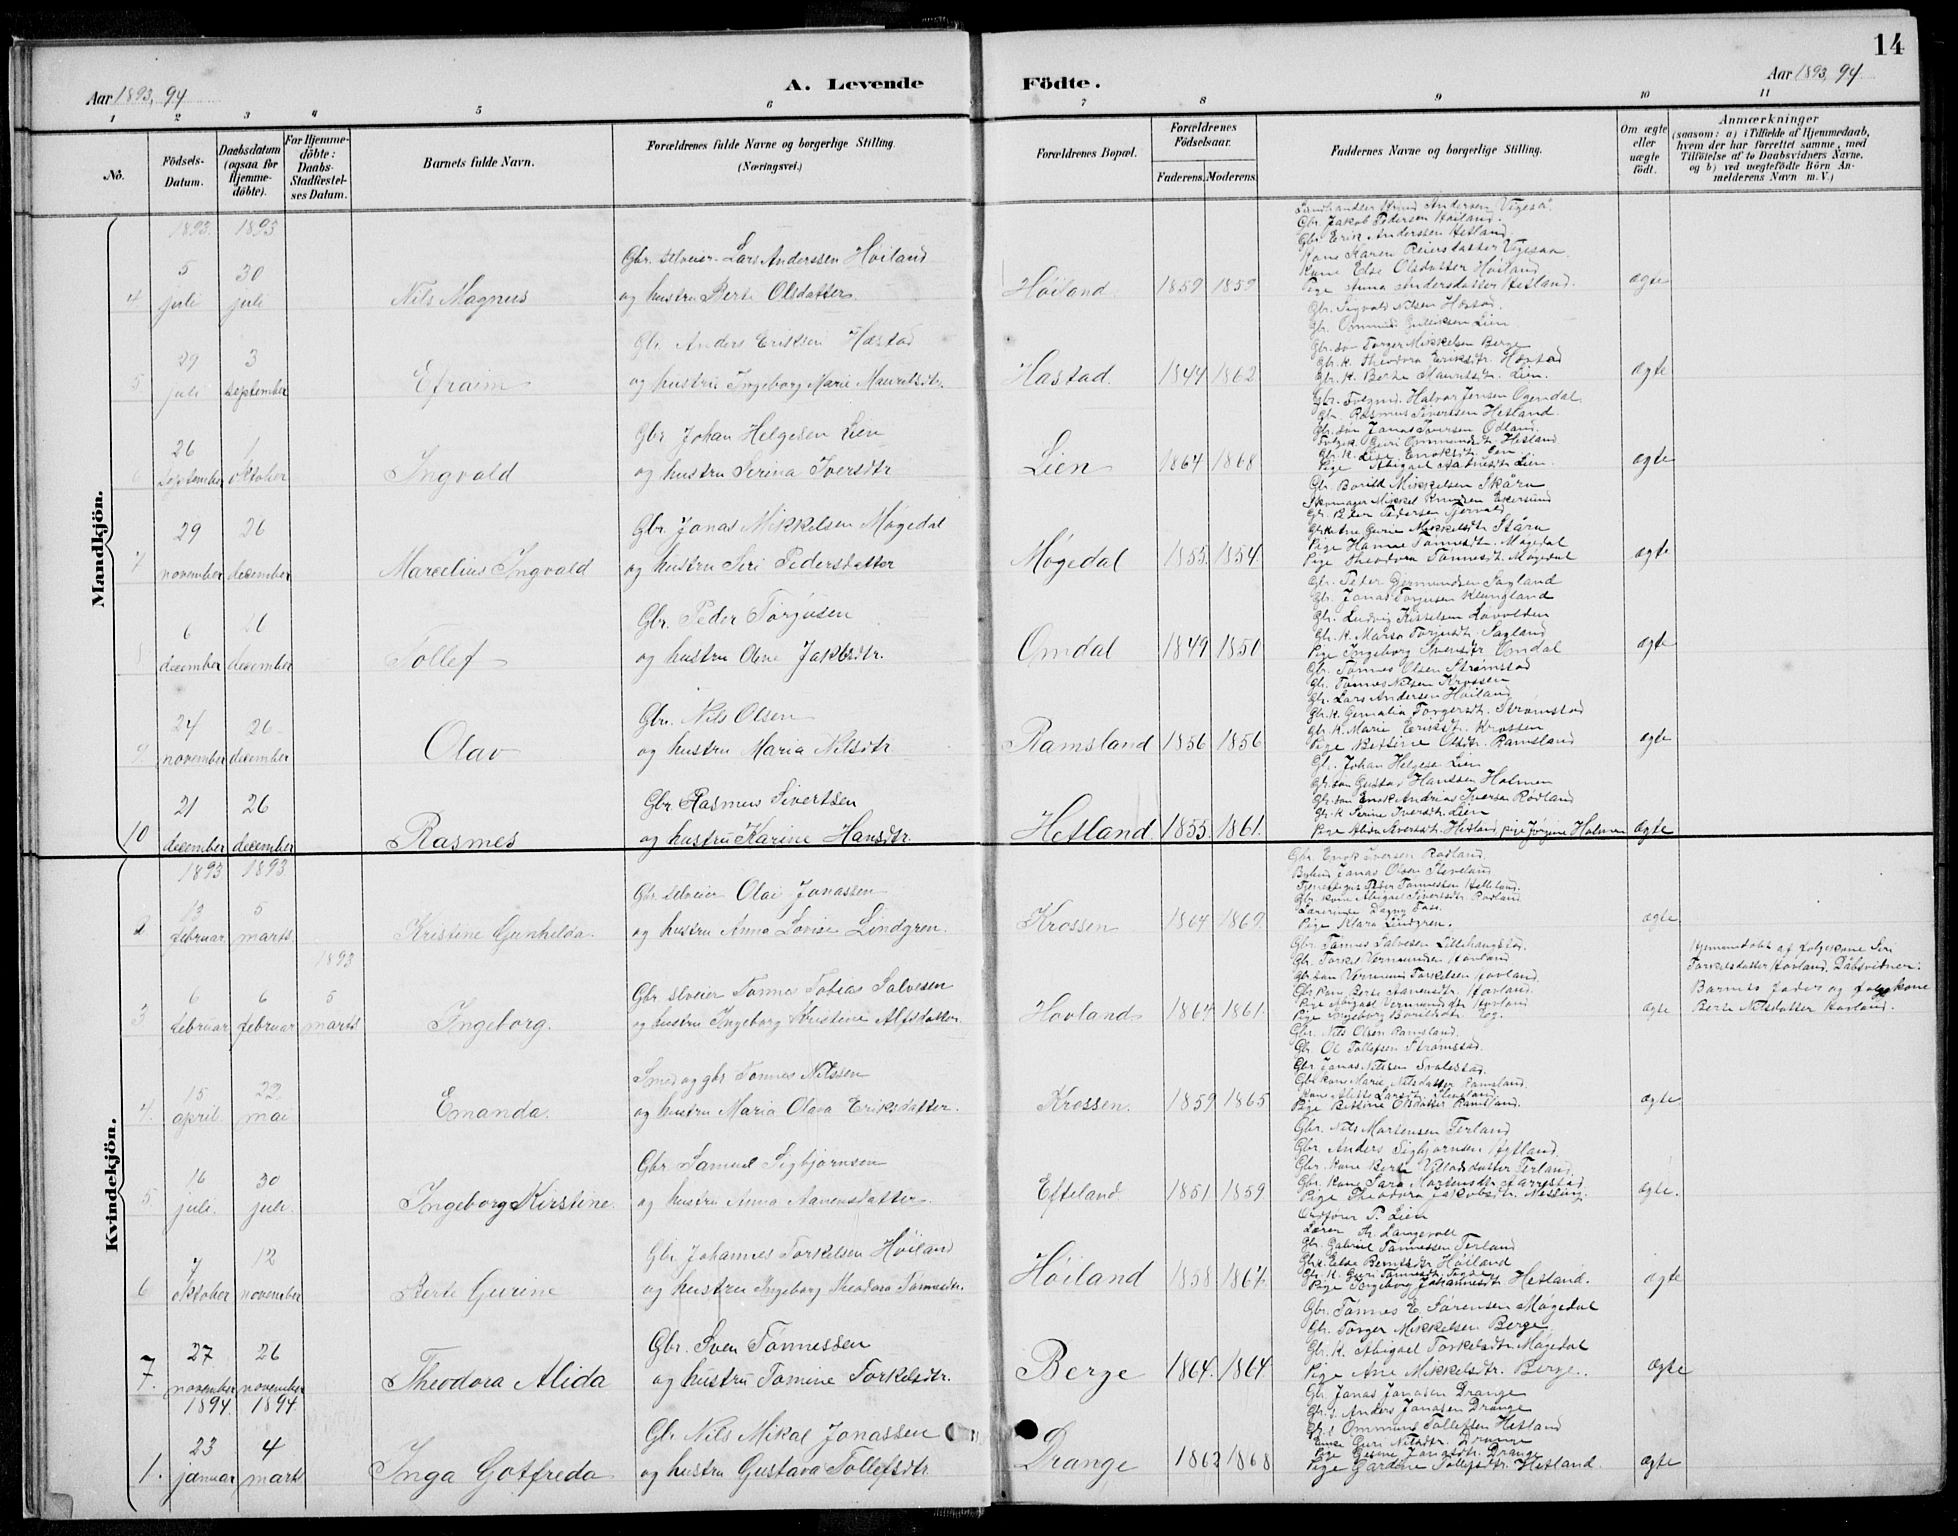 14
Aar 1893, 94
A. Levende Födte.
Aar 1893, 94
1 2 3 4 5 6 7 8 9 10 11
No.
Födsels-Datum.
Daabsdatum (ogsaa for Hjemme-döbte).
For Hjemme-döbte: Daabs-Stadfæstel-ses Datum.
Barnets fulde Navn.
Forældrenes fulde Navne og borgerlige Stilling. (Næringsvei.)
Forældrenes Bopæl.
Forældrenes Födselsaar.
Faderens. Moderens.
Faddernes Navne og borgerlige Stilling.
Om ægte eller uægte födt.
Anmærkninger
(saasom: a) i Tilfælde af Hjemmedaab, hvem der har forrettet samme, med Tilföielse af to Daabsvidners Navne, og b) ved uægtefödte Börn An-melderens Navn m. V.)
Mandkjön.
1893 1893
4 5 juli 30 juli Nils Magnus
Gbr. selveier Lars Anderssen Höiland
og hustru Berte Olsdatter
Höiland 1859 1859
Landhandler Knud Andersen Vigesa
Gbr. Jakob Pedersen Höiland.
Gbr Erik Anderssen Hetland.
Kone Karen Reinsdatter Vigesaa
Kone Else Olsdatter Höiland
Pige Anna Andersdatter Hetland.
ægte
5 29 juli 3 september Efraim
Gbr Anders Eriksen Hæstad
og hustru Ingeborg Marie Mauritsdtr.
Hæstad 1844 1862
Gbr. Sigvald Nilsen Hæstad.
Gbr. Ommund Gulliksen Lien.
Gbr. søn Torger Mikkelsen Berge
Gbr. k. Theodora Eriksdtr. Hæstad
Gbr. K. Berte Mauritsdtr. Lien.
ægte
6 26 september 1 oktober Ingvald
Gbr Johan Helgesen Lien
og hustru Serina Iversdtr
Lien 1864 1868
Gbr. Folgmd. Halvor Jensen Ogendal
Gbr. Rasmus Sivertsen Hetland.
Gbr. søn Jonas Iversen Ödland.
Folgek. Guri Ommundsdtr. Hetland
Gbr. K. Lise Enoksdtr. Lien
Pige Abigael Aanensdtr Lien.
ægte
7 29 november 26 december Marcelius Ingvald
Gbr. Jonas Mikkelsen Møgedal
og hustru Siri Pedersdatter
Møgedal 1855 1854
Gbr. Borild Mikkelsen Skåra
Skomager Mikkel Knudsen Ekersund
Gbr. Peter Pedersen Tjorvald
Gbr. kone Gurie Mikkelsdtr. Skåra
Pige Hanne Tønnesdtr. Møgedal
Pige Theodora Tønnesdtr. Møgedal
ægte
8 6 december 26 december Tollef
Gbr. Peder Torgusen
og hustru Olene Jakobsdtr.
Omdal 1849 1850
Gbr. Peter Germundsen Sagland
Gbr. Jonas Torgersen Klungland
Gbr. Ludvig Kittelsen Løvolden
Gbr. K. Marta Torgersdtr. Sagland
Pige Ingeborg Svensdtr Omdal
ægte
9 24 november 26 december Olav
Gbr. Nils Olsen
og hustru Maria Nilsdtr
Ramsland 1856 1856
Gbr. Tønnes Olsen Strømstad
Gbr. Tønnes Nilsen Krossen
Gbr. Lars Andersen Høiland
Gbr. K. Gemalia Torgersdtr. Strømstad
Gbr. K. Marie Eriksdtr. Krossen
Pige Bettine Olsdtr. Ramsland
ægte
10 21 december 26 december Rasmes
Gbr Rasmus Sivertsen
og hustru Karine Hansdtr.
Hetland 1855. 1861.
Gbr. Johan Helgese Lien
Gbr. søn Gustav Hanssen Holmen
Gbr. søn Enok Andrias Iversen Rödland
Gbr. K. Serine Iversdtr. Lien
Pige Alida Sivertsdtr. Hetland, pige Jørgine Holmen
ægte
Kvindekjön.
1893 1893
2 13 februar 5 marts Kristine Gunhilda.
Gbr selveier Olai Jonassen
og hustru Anna Lovise Lindgren.
Krossen 1864 1869
Gbr. Enok Iversen Rödland.
Bylund Jonas Olsen Steveland
Tjenestegut Peder Tønnessen Helleland.
Gbr. kone Abigael Sivertsdtr Rödland
Lærerinde Dagny Foss.
Pige Klara Lindgren.
ægte
1893
3 6 februar 6 februar 5 marts Ingeborg.
Gbr selveier Tønnes Tobias Salvesen
og hustru Ingeborg Kristine Alfsdatter
Hovland 1864 1861.
Gbr. Tønnes Salvesen Lillehaugstad.
Gbr. Torkel Vermundsen Hovland
Gbr søn Vermund Torkelsen Hovland
Gbr kone Berte Aanensdtr Hovland
Pige Abigael Vermundsdtr Hovland
Pige Ingeborg Borildsdtr Eeg.
ægte
Hjemmedøbt af folgekone Siri Torkelsdatter Hovland. Dåbsvidner:
Barnets fader og folgekone Berte Nilsdatter Hovland.
4. 15 april 22 mai Emanda.
Smed og gbr Tønnes Nilssen
og hustru Maria Olava Eriksdatter.
Krossen. 1859 1865
Gbr. Nils Olsen Ramsland.
Gbr Ol Tollefsen Strømstad.
Gbr Jonas Nilssen Svalestad
Gbr kone Marie Nilsdatter Ramsland
Kone Alette Larsdtr. Steveland.
Pige Bettine Olsdatter Ramsland.
ægte
5 16 juli. 30 juli Ingeborg Kirstine.
Gbr Samuel Sigbjørnsen
og hustru Anna Aanensdatter
Efteland 1851. 1859.
Gbr. Nils Mortensen Terland
Gbr. Anders Sigbjørnsen Hytland.
Gbr. kone Berte Villadsdatter Terland.
Gbr. kone Sara Mortensdtr Aarrestad
Pige Theodora Jakobsdtr. Netting.
ægte.
6 7 oktober 12 november Berte Gurine
Gbr. Johannes Torkelsen Höiland
og hustru Ingeborg Theodora Tønnesdtr.
Höiland 1858 1867.
Ordfører P. Lien
Lærer A. Langevoll
Gbr. Gabriel Tønnessen Terland
Gbr. k Else Berntsdtr Höiland
Gbr. K. Guri Tønnesdtr.
Pige Torgeborg Johannesdtr Hetland.
ægte
7. 27 november 26 november Theodora Alida
Gbr. Sven Tønnessen
og hustru Tomine Torkelsdtr.
Berge 1864. 1864.
Gbr. Tønnes E. Sørensen Møgedal
Gbr. Torger Mikkelsen Berge
Gbr. K. Abigael Torkelsdtr Møgedal
Pige Ane Mikkelsdtr. Berge.
ægte
1894. 1894
1. 23 januar 4 marts Inga Gotfreda
Gbr Nils Mikal Jonassen
og hustru Gustava Tollefsdtr.
Drange 1862 1868
Gbr Jonas Jonasen Drange
Gbr. s. Anders Jonasen Drange
Gbr. s Ommund Tollefsen Hetland
Enke Guri Nilsdtr Drange
Pige Gesine Jonasdtr. Drange
Pige Gardine Tollefsdtr. Hetland
ægte